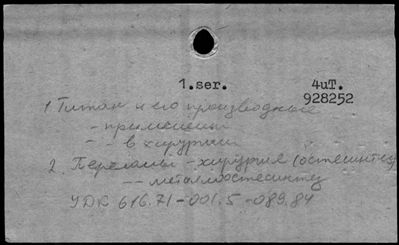 1.ser. 4uT.
928252
1. Титан и его производные
- применены
- " - в хирургии
2. Переломы - хирургия (остеосинтез)
-- металлоостеосинтез
УДК 616.71-001.5-089.84